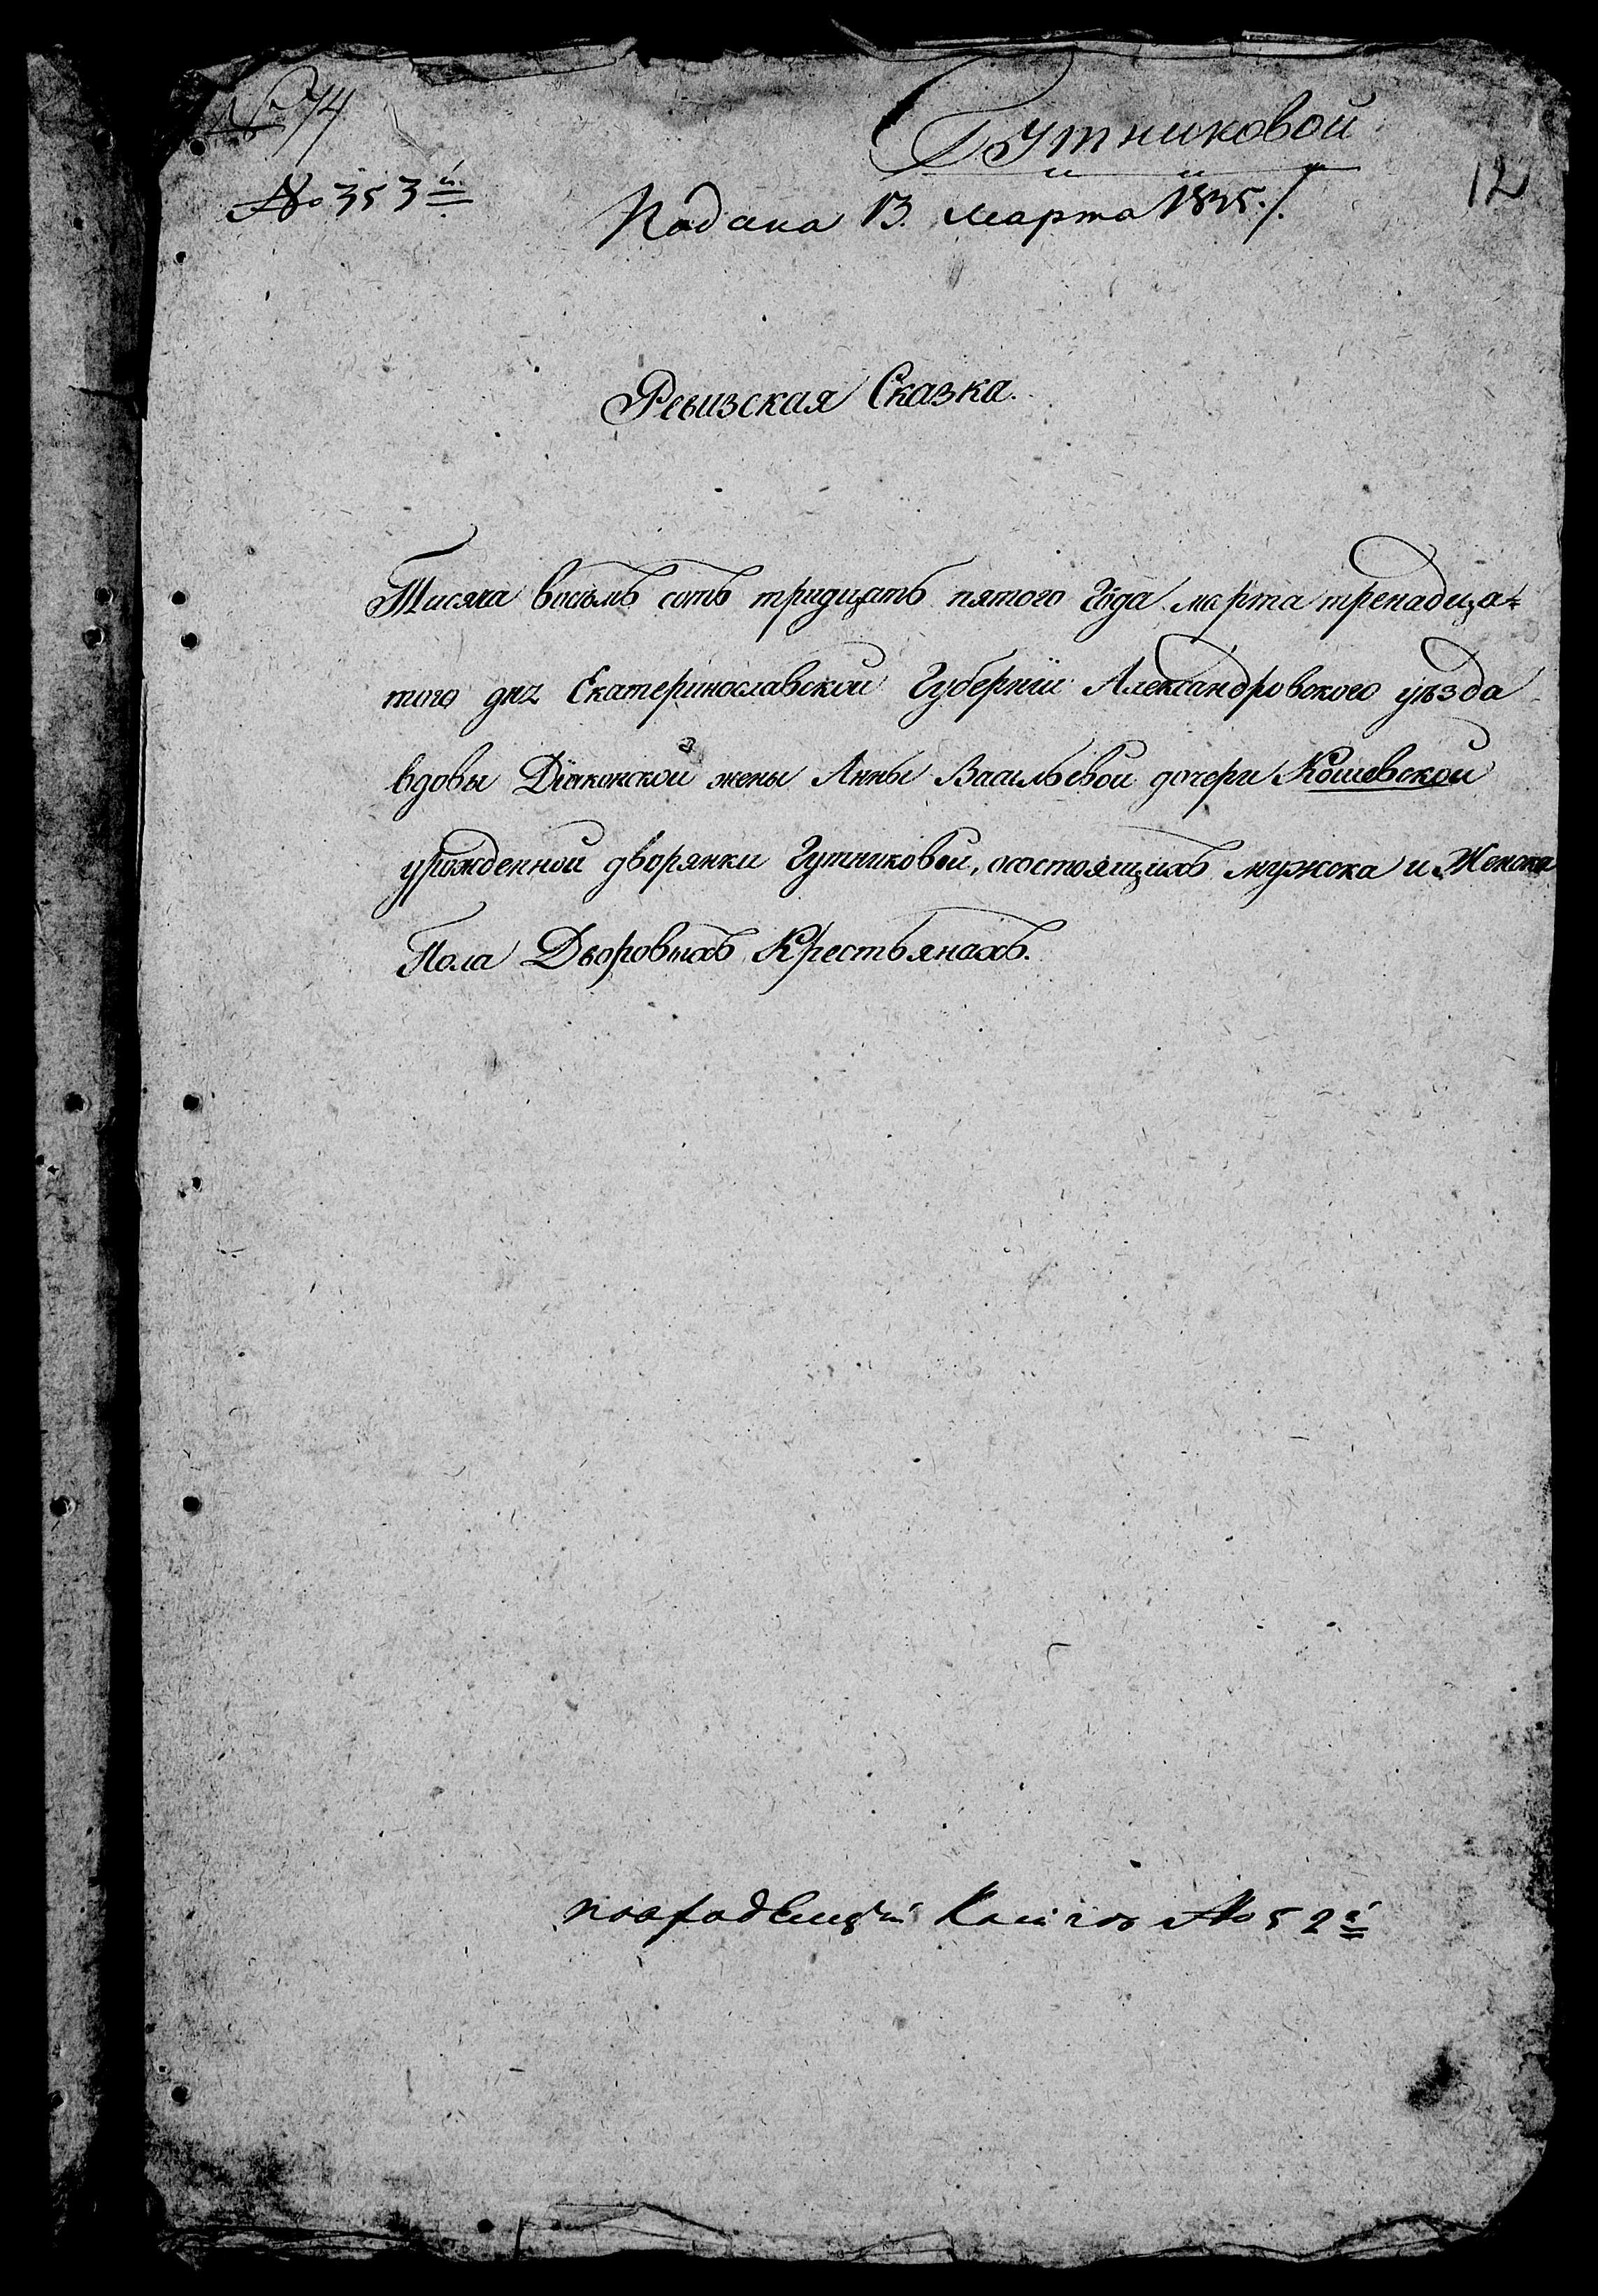 № 74
Гутниковой
12
№ 353й
Подана 13. марта 1835./.
Ревизская Сказка.
Тисяча восьмь сотъ тридцать пятого Года марта тренадеца=
того дня Екатеринославской Губерніи Александровского уѣзда
вдовы Діяконской жены Анны Васильевой дочери Кошевской
урожденной дворянки Гутниковой, осостоящихъ мужска и Женска
Пола Дворовыхъ Крестьянахъ.
№ 52й